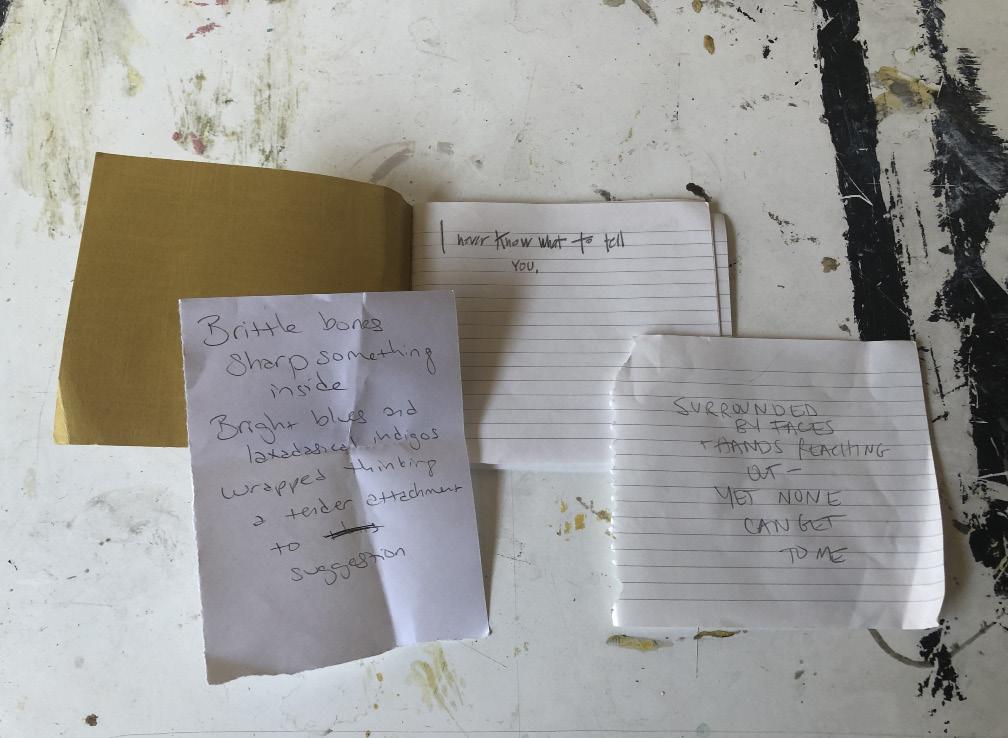 I never know what to tell
you.
Brittle bones
Sharp something
inside
Bright blues and
laxadasical indigos
wrapped thinking
a tender attachment
to
suggestion
SURROUNDED
BY FACES
+ HANDS REACHING
OUT -
YET NONE
CAN GET
TO ME